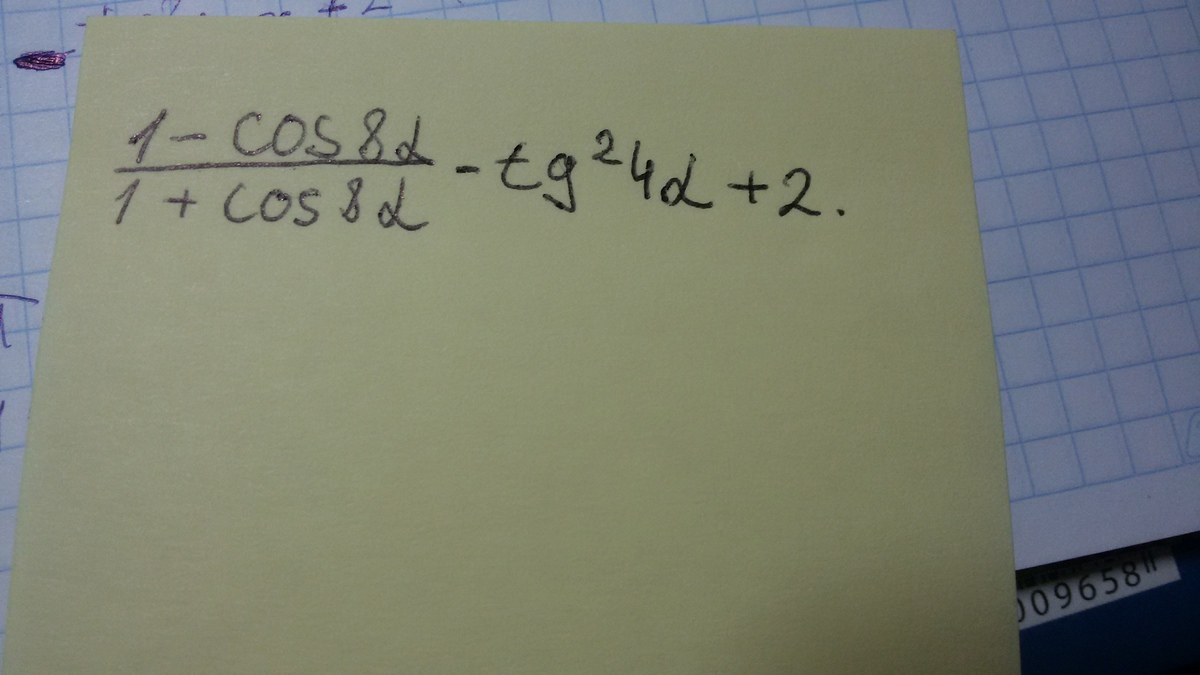 1 - cos 8α / 1 + cos 8α - tg² 4α + 2.
009658"